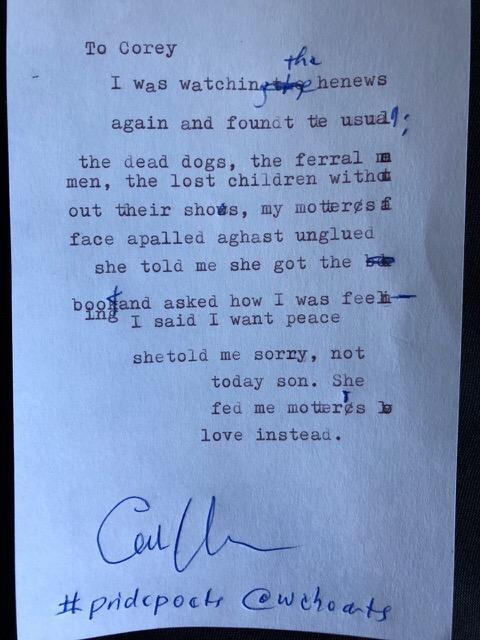 To Corey
the
I was watching henews
again and foundt te usual;
the dead dogs, the ferral m
men, the lost children witho
out their shoes, my motters f
face apalled aghast unglued
she told me she got the
book and asked how I was feel
ing
I said I want peace
shetold me sorry, not
today son. She
fed me motter's
love instead.
#pridepoets @wehoarts